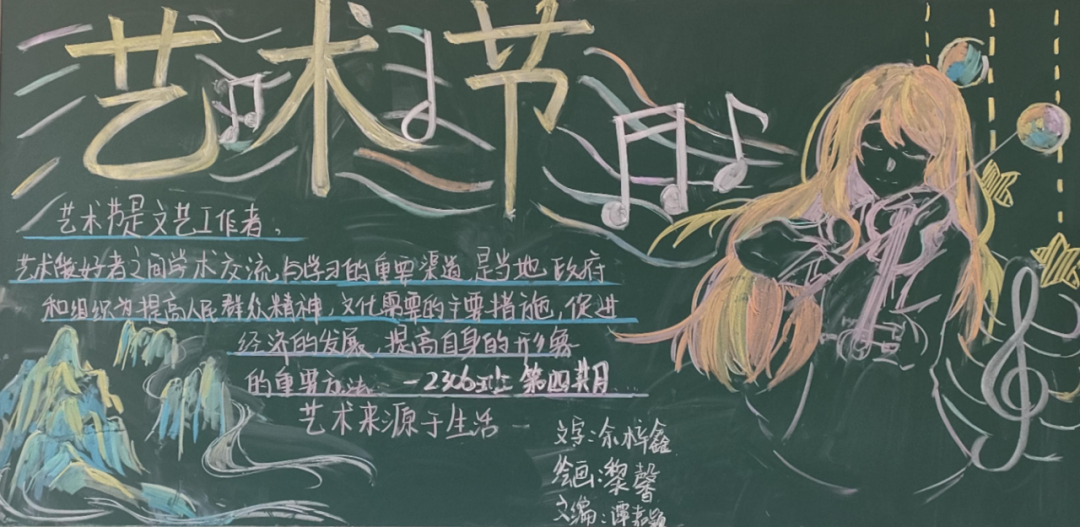 艺术节
艺术节是文艺工作者,
艺术爱好者之间学术交流与学习的重要渠道,是当地政府
和组织为提高人民群众精神文化需要的主要措施,促进
经济的发展,提高自身的形象
的重要方法. -2306班 第四期
艺术来源于生活
文字:余梓鑫
绘画:黎馨
文编:谭嘉